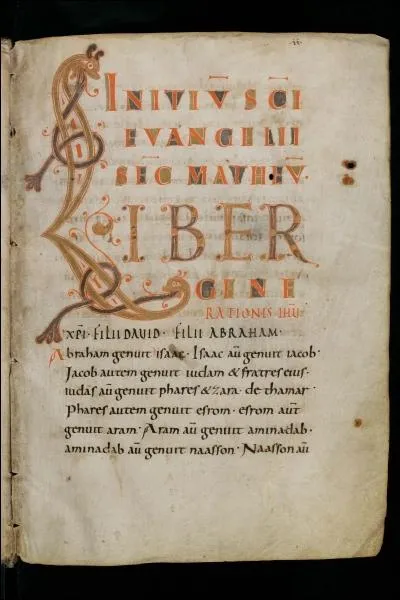 INITIŪ SC̄I
EVANGELII
SEC̄ MATHEV̄·
LIBER
GINE
RATIONIS·IHŪ·
XP̄I· FILII DAUID· FILII ABRAHAM·
Abraham genuit isaac· Isaac aū genuit iacob·
Jacob autem genuit iudam & fratres eius·
iudas aū genuit phares & zara· de thamar·
Phares autem genuit esrom· esrom aut̄
genuit aram· Aram aū genuit aminadab·
aminadab aū genuit naasson· Naasson aū